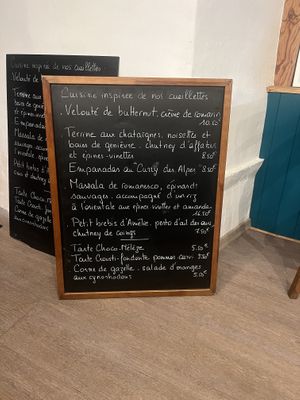 Cuisine inspirée de nos cueillettes
. Velouté de butternut, crème de romarin
10.00€
. Terrine aux chataignes, noisettes et
baies de genièvre. chutney
et épines-vinettes
8.50€
. Empanadas au "Curry des Alpes" 8.50€
. Massala de romanesco, épinards
sauvages. accompagné d'un riz
à l'orientale aux épines vinettes et amandes
16.50€
. Petit brebis d'Amélie. pesto d'ail des ours
chutney de coings
7.50€
. Tarte Choco-Mélèze 5.00€
. Tarte Crousti-fondante pommes carvi
. Corne de gazelle. salade d'oranges
aux cynorhodons 5.00€
Cuisine inspirée de nos cueillettes
Velouté de
Terrine aux
baies de
et épines
Empanadas
Massala de
sauvages
à l'orientale
Petit brebis
chutney
Tarte Choco
Tarte Crousti
Corne de gaz
aux cyno